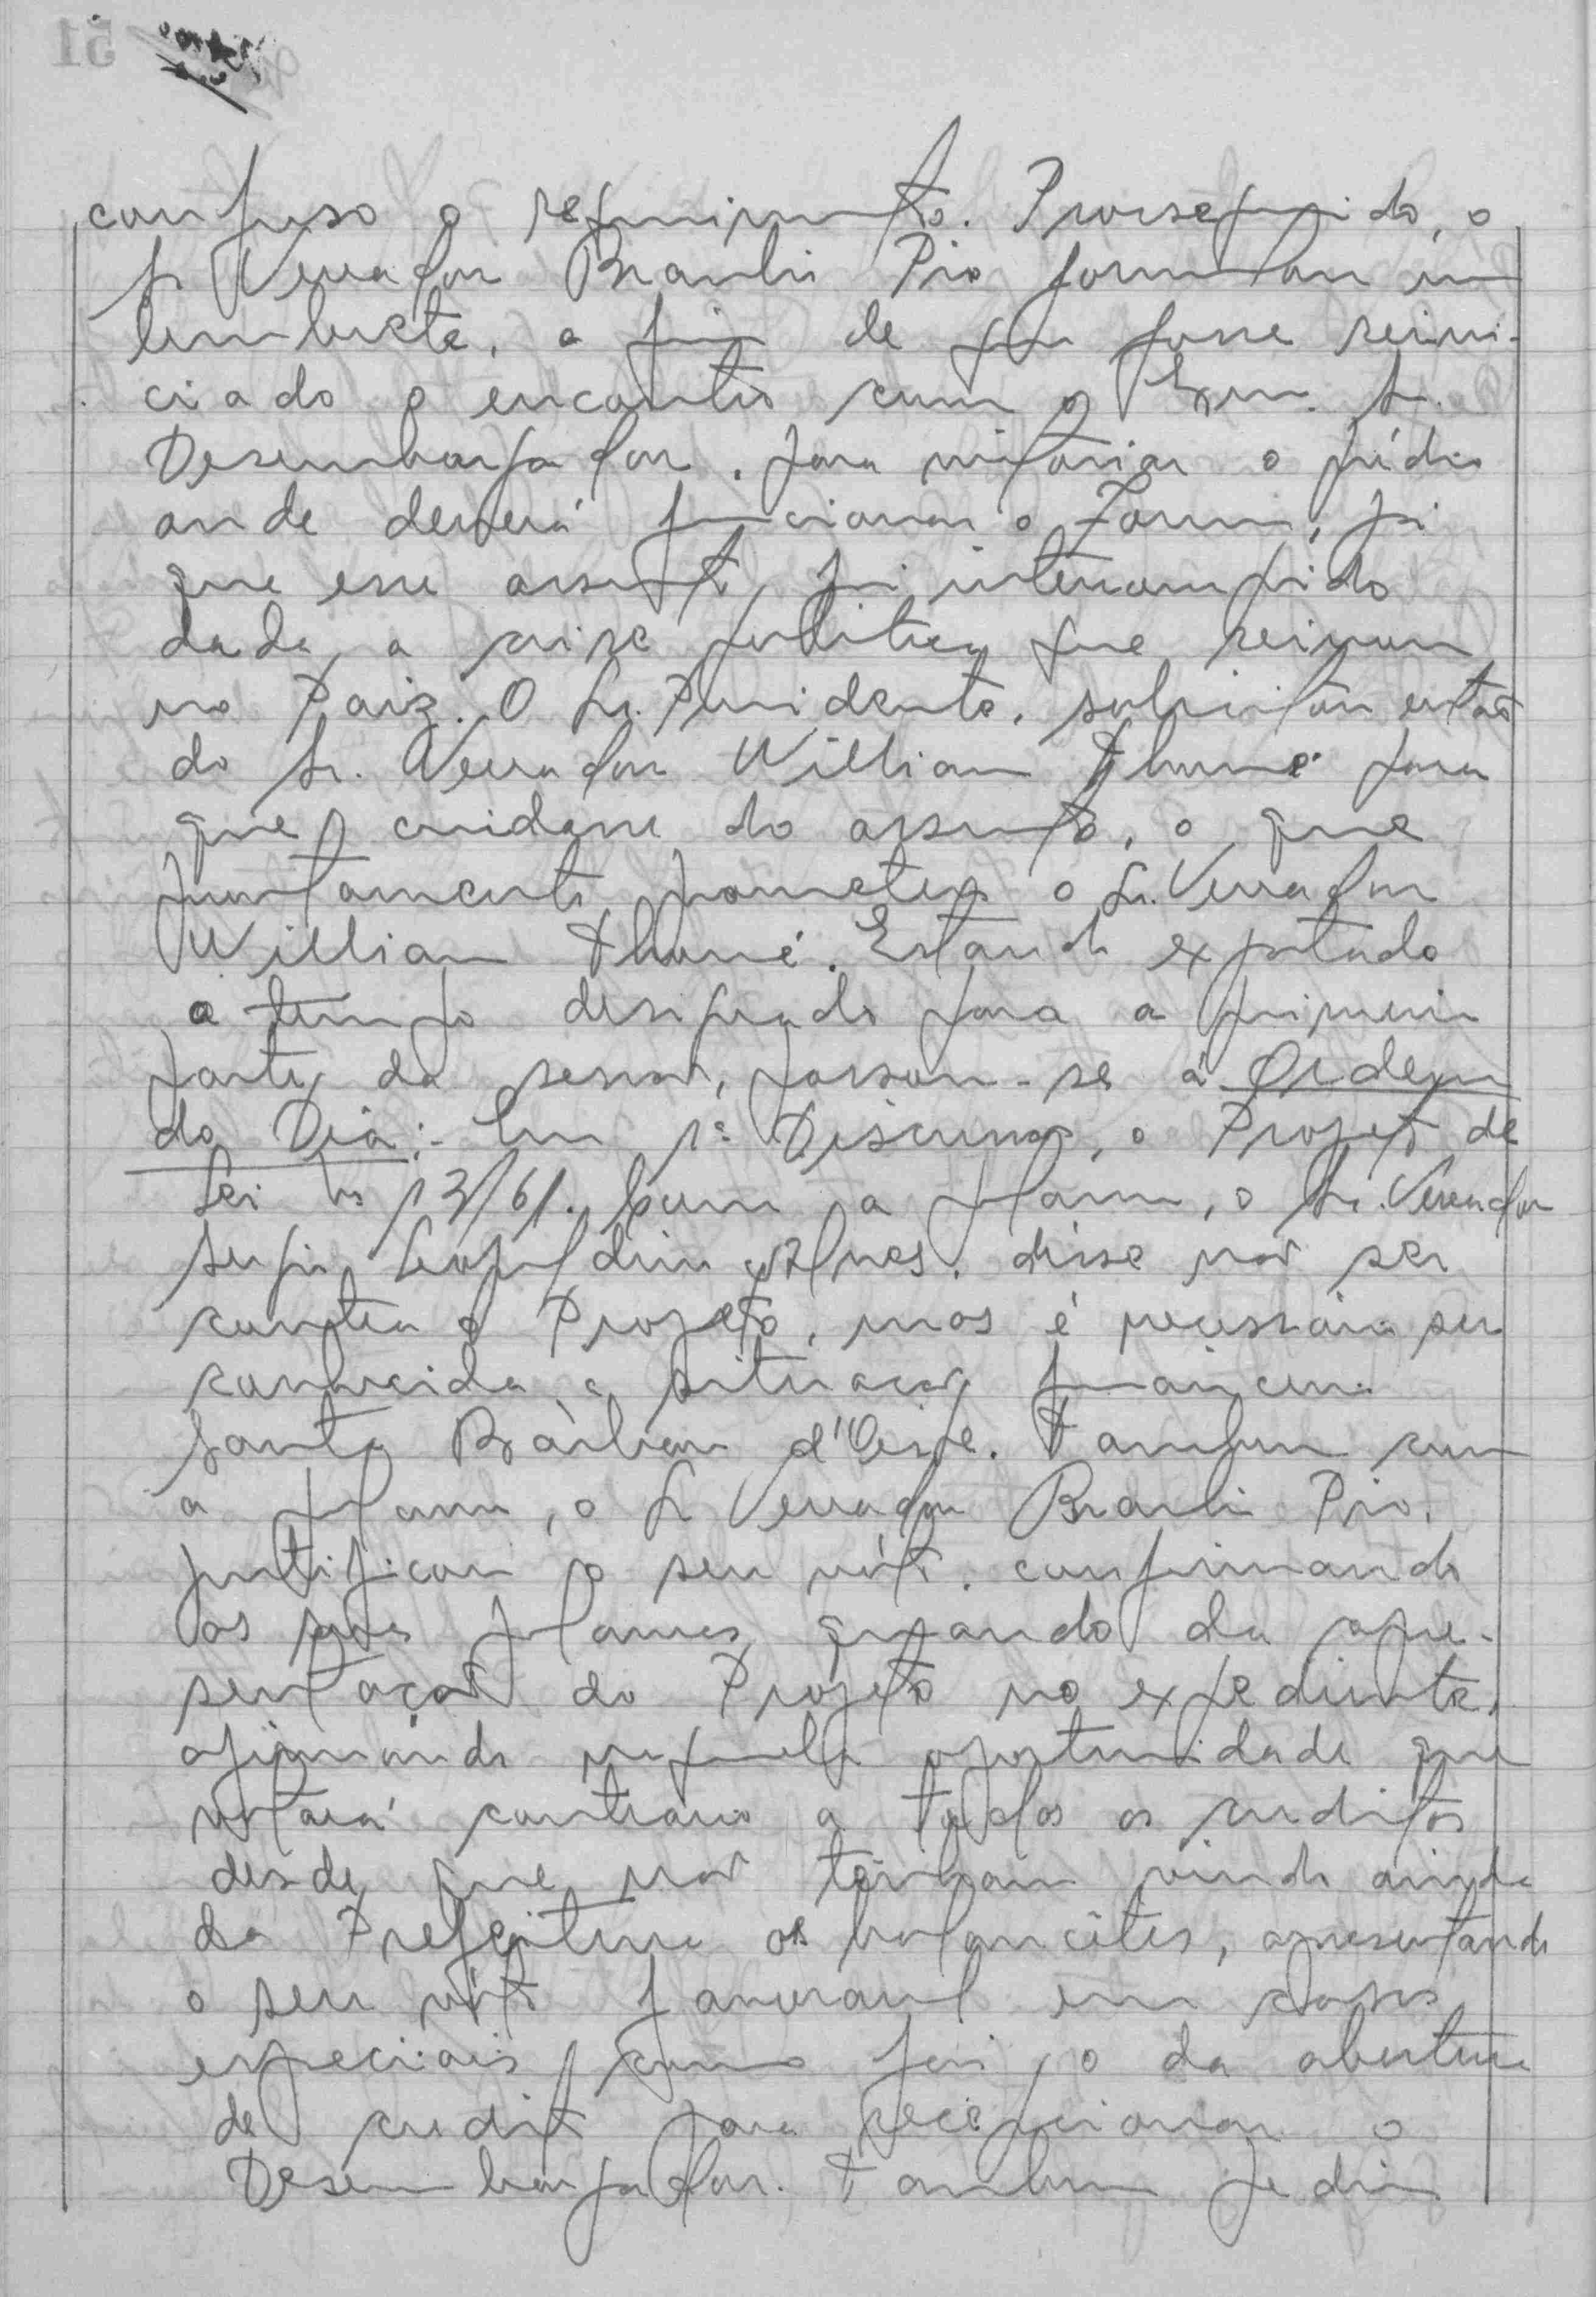 confuso o requerimento. Prosseguido, o
Sr Vereador Braulio Pio formulou um
lembrete, a fim de que fosse reini-
ciado o encontro com o Exm. Sr.
Desembargador, para vistoriar o prédio
onde deverá funcionar o Forum, já
que esse assunto foi interrompido
dada a crise politica que reinou
no Paiz. O Sr. Presidente, solicitou então
do Sr. Vereador William Thomé para
que cuidasse do assunto, o que
prontamente prometeu o Sr. Vereador
William Thomé. Estando exgotado
o tempo designado para a primeira
parte da sessão, passou-se á Ordem
do Dia:- Em 1ª Discussão, o Projeto de
Lei nº 13/61. Com a palavra, o Sr. Vereador
Sergio Leopoldino Alves, disse não ser
contra o Projeto, mas é necessário ser
conhecida a situação financeira
Santa Bàrbara d'Oeste. Tambem com
a palavra, o Sr Vereador Braulio Pio,
justificou o seu vóto, confirmando
as suas palavras quando da apre-
sentação do Projeto no expediente,
afirmando naquela oportunidade que
votará contrario a todos os creditos
desde que não tenham vindo ainda
da Prefeitura os balancêtes, apresentando
o seu vóto favoravel em casos
especiais como foi o da abertura
de credito para recepcionar o
Desembargador. Tambem pediu